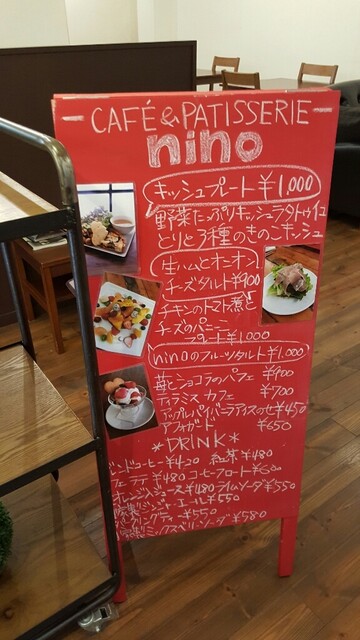 CAFÉ & PATISSERIE
nino
キッシュプレート ¥1,000
野菜たっぷりキッシュラタトゥイユ
とりと3種のきのこキッシュ
生ハムとオニオン
チーズタルト ¥900
チキンのトマト煮!
チーズのパニーニ
プレート ¥1000
ninoのフルーツタルト ¥1,000
苺とショコラのパフェ ¥900
ティラミス カフェ ¥700
アップルパイバニラアイスのせ ¥450
アフォガード ¥650
*DRINK*
ンドコーヒー ¥420 紅茶 ¥480
フェラテ ¥480 コーヒーフロート ¥600
オレンジジュース ¥480 ライムソーダ ¥550
ジンジャーエール ¥550
ティー ¥550
ミックスベリーソーダ ¥580